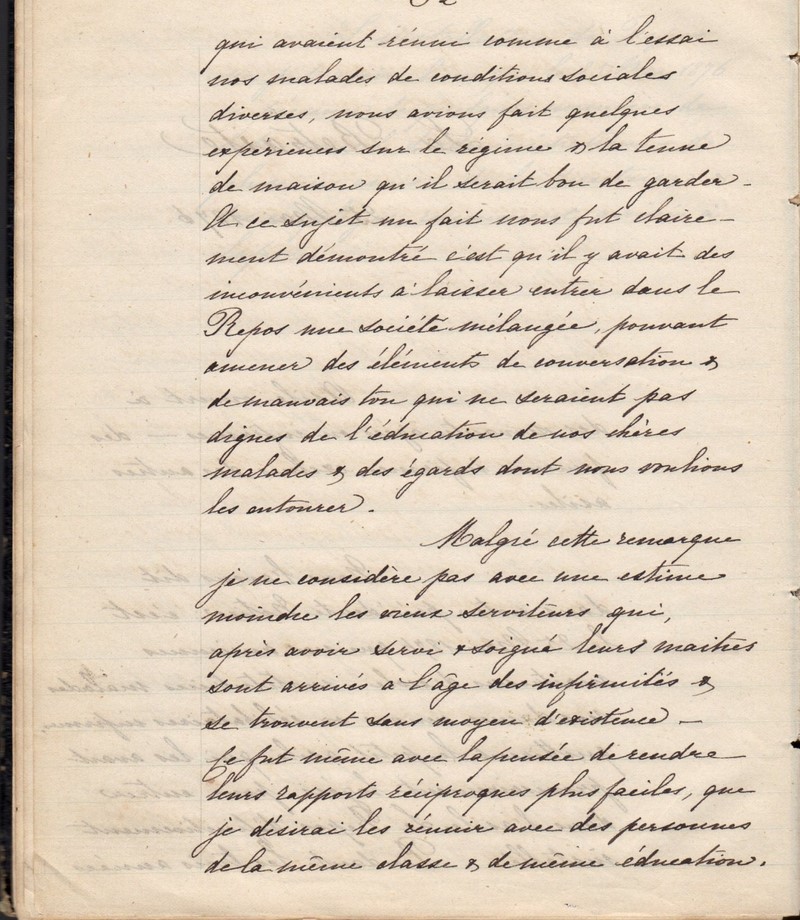 qui avaient réuni comme à l'essai
nos malades de conditions sociales
diverses, nous avions fait quelques
expériences sur le régime & la tenue
de maison qu'il serait bon de garder -
A ce sujet un fait nous fut claire-
ment démontré c'est qu'il y avait des
inconvénients à laisser entrer dans le
Repos une société mélangée, pouvant
amener des éléments de conversation &
de mauvais ton qui ne seraient pas
dignes de l'éducation de nos chères
malades & des égards dont nous voulions
les entourer.
Malgré cette remarque
je ne considère pas avec une estime
moindre les vieux serviteurs qui,
après avoir servi & soigné leurs maitres
sont arrivés à l'âge des infirmités &
se trouvent sans moyen d'existence -
Ce fut même avec la pensée de rendre
leurs rapports réciproques plus faciles, que
je désirai les réunir avec des personnes
de la même classe & de même éducation.